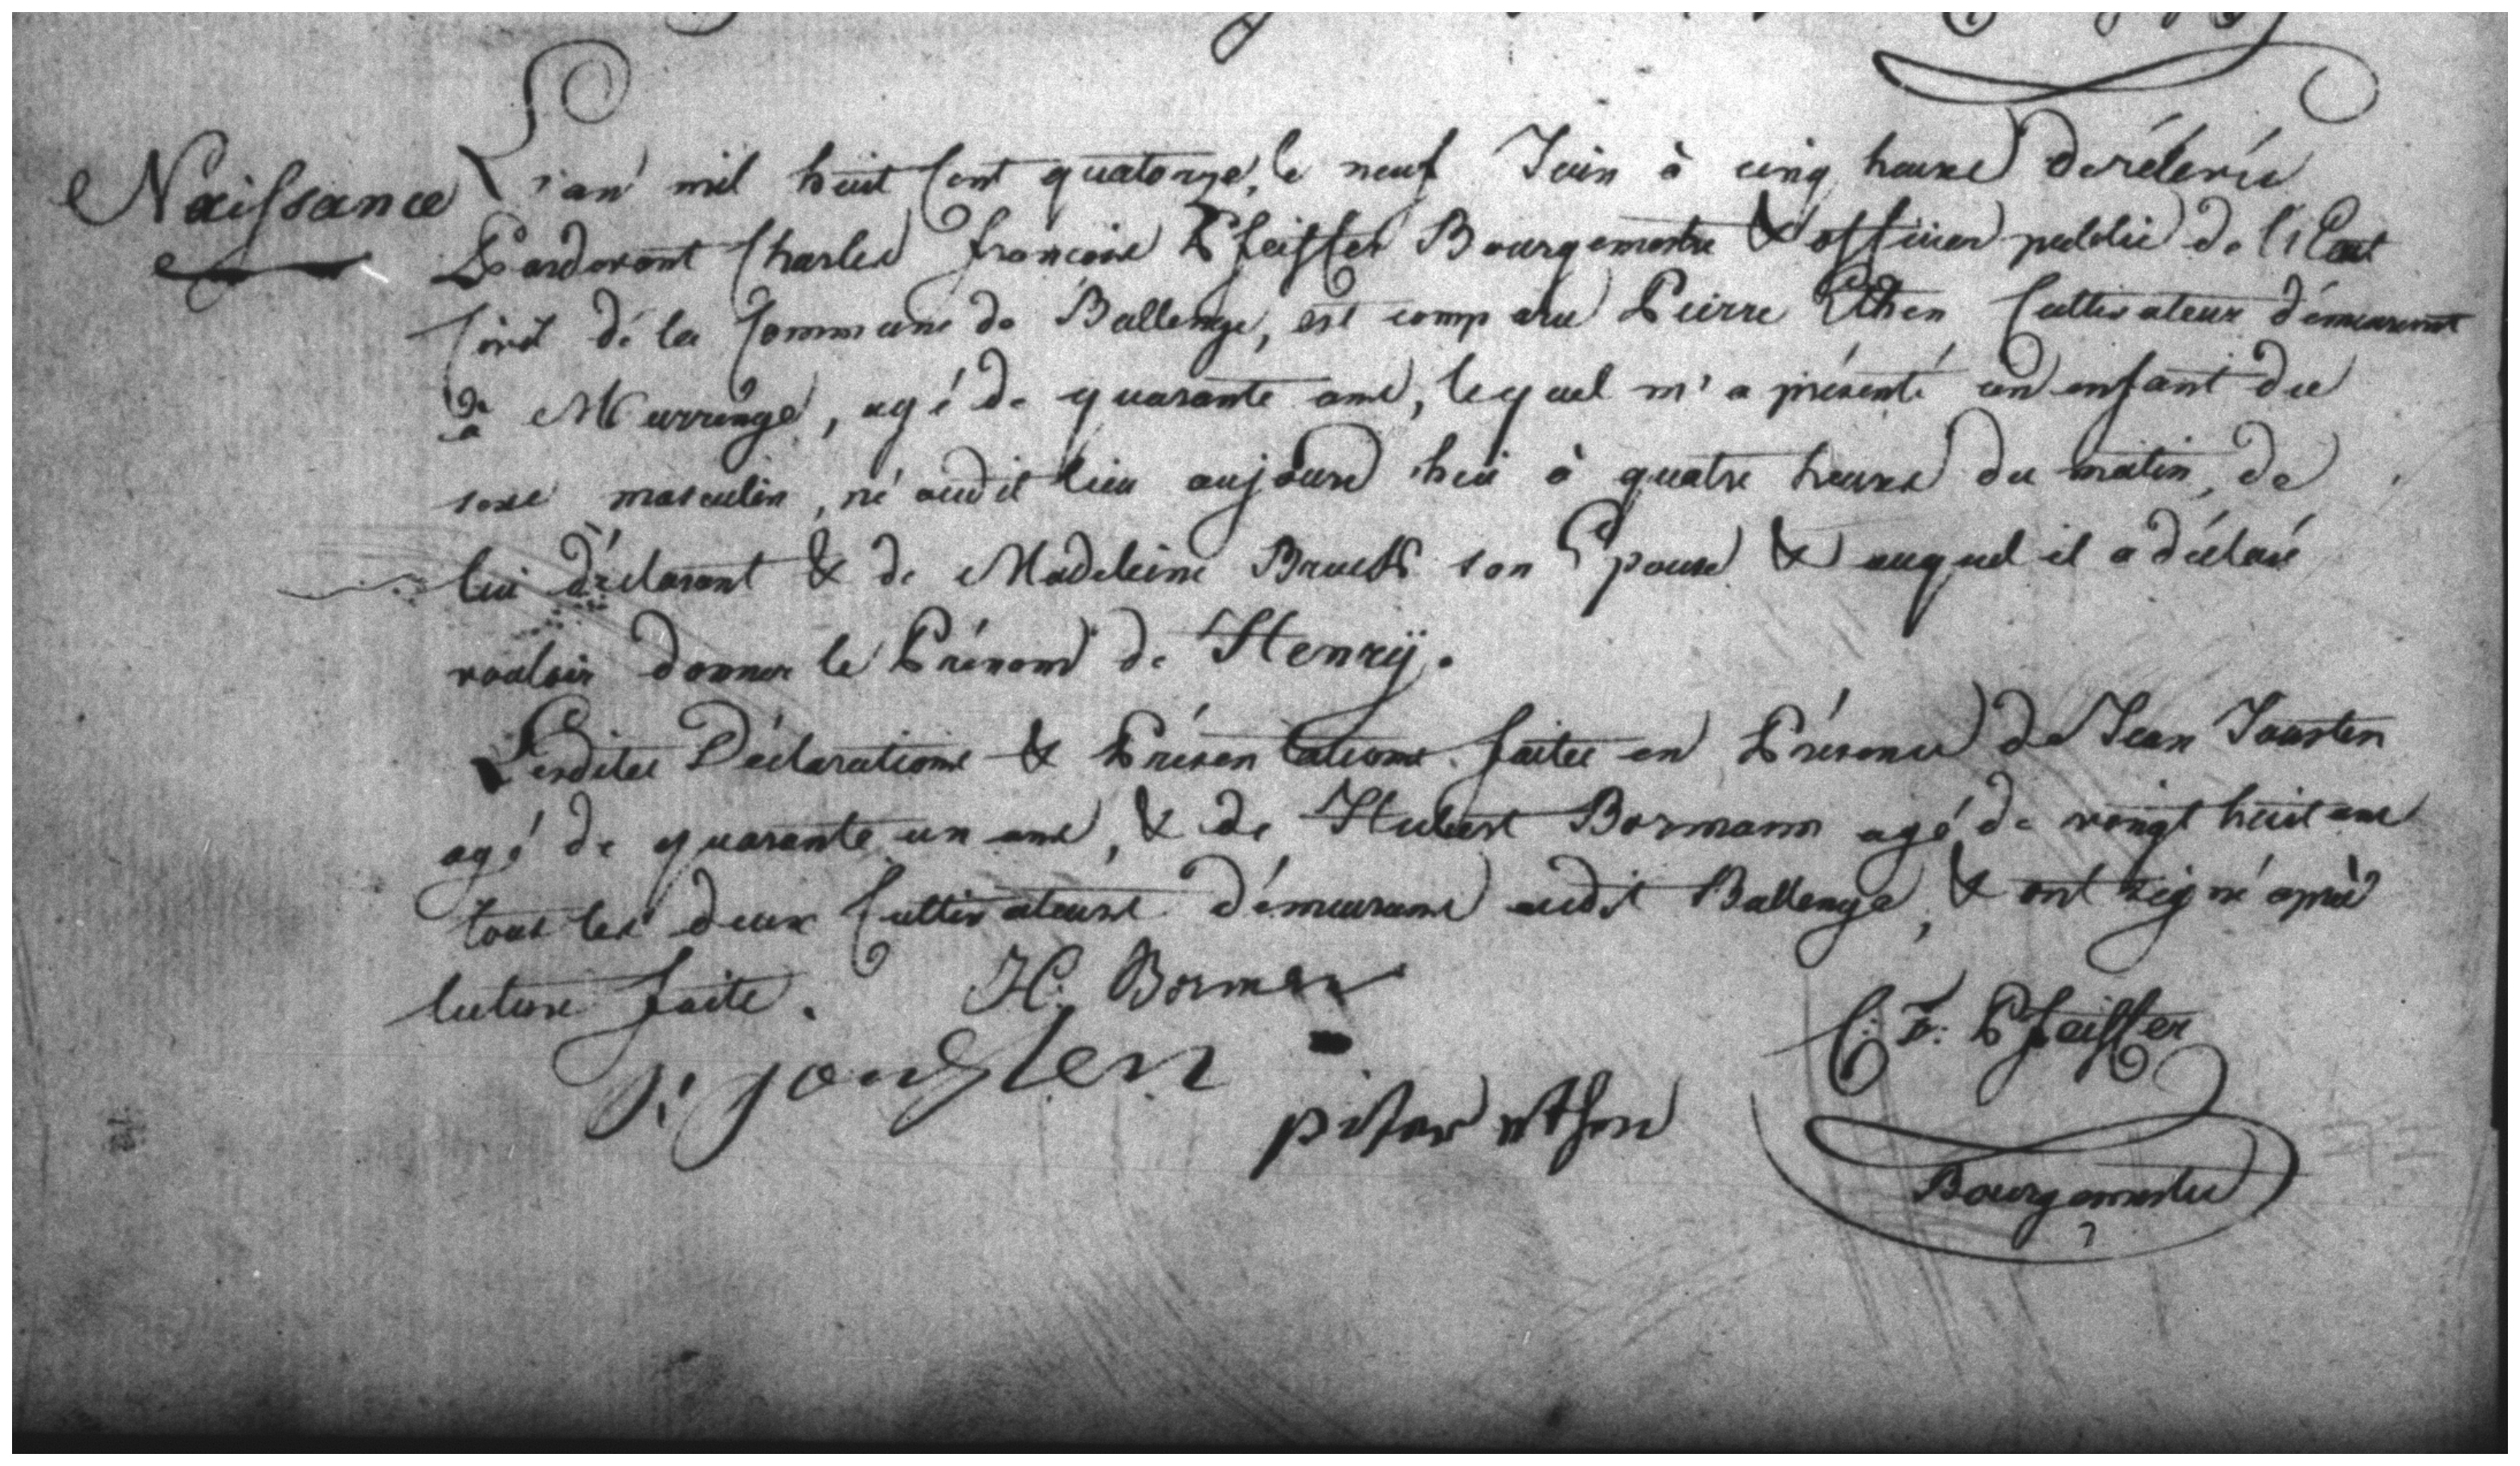 Naissance
L'an mil huit Cent quatorze, le neuf Juin à cinq heures de rélevée
Pardevant Charles françois Pfeiffer Bourgemestre & officier public de l'Etat
Civil dé la Commune de Bullenge, est comparu Pierre Ethen Cultivateur démeurant
à Murringe, agé de quarante ans, lequel m'a présenté un enfant du
sexe masculin, né audit lieu aujourd'hui à quatre heures du matin, de
lui déclarant & de Madeleine Bruck son Epouse & auquel il a déclaré
vouloir donner le Prénom de Henrÿ.
Lesdites Déclarations & Présentations faites en Présence de Jean Jousten
agé de quarante un ans, & de Hubert Bormann agé de vingt huit ans
tous les deux Cultivateurs démeurans audit Bullenge, & ont signé après
lecture faite. H. Borman
C: F: Pfeiffer
J: Jousten
piter ethen
Bourgemestre